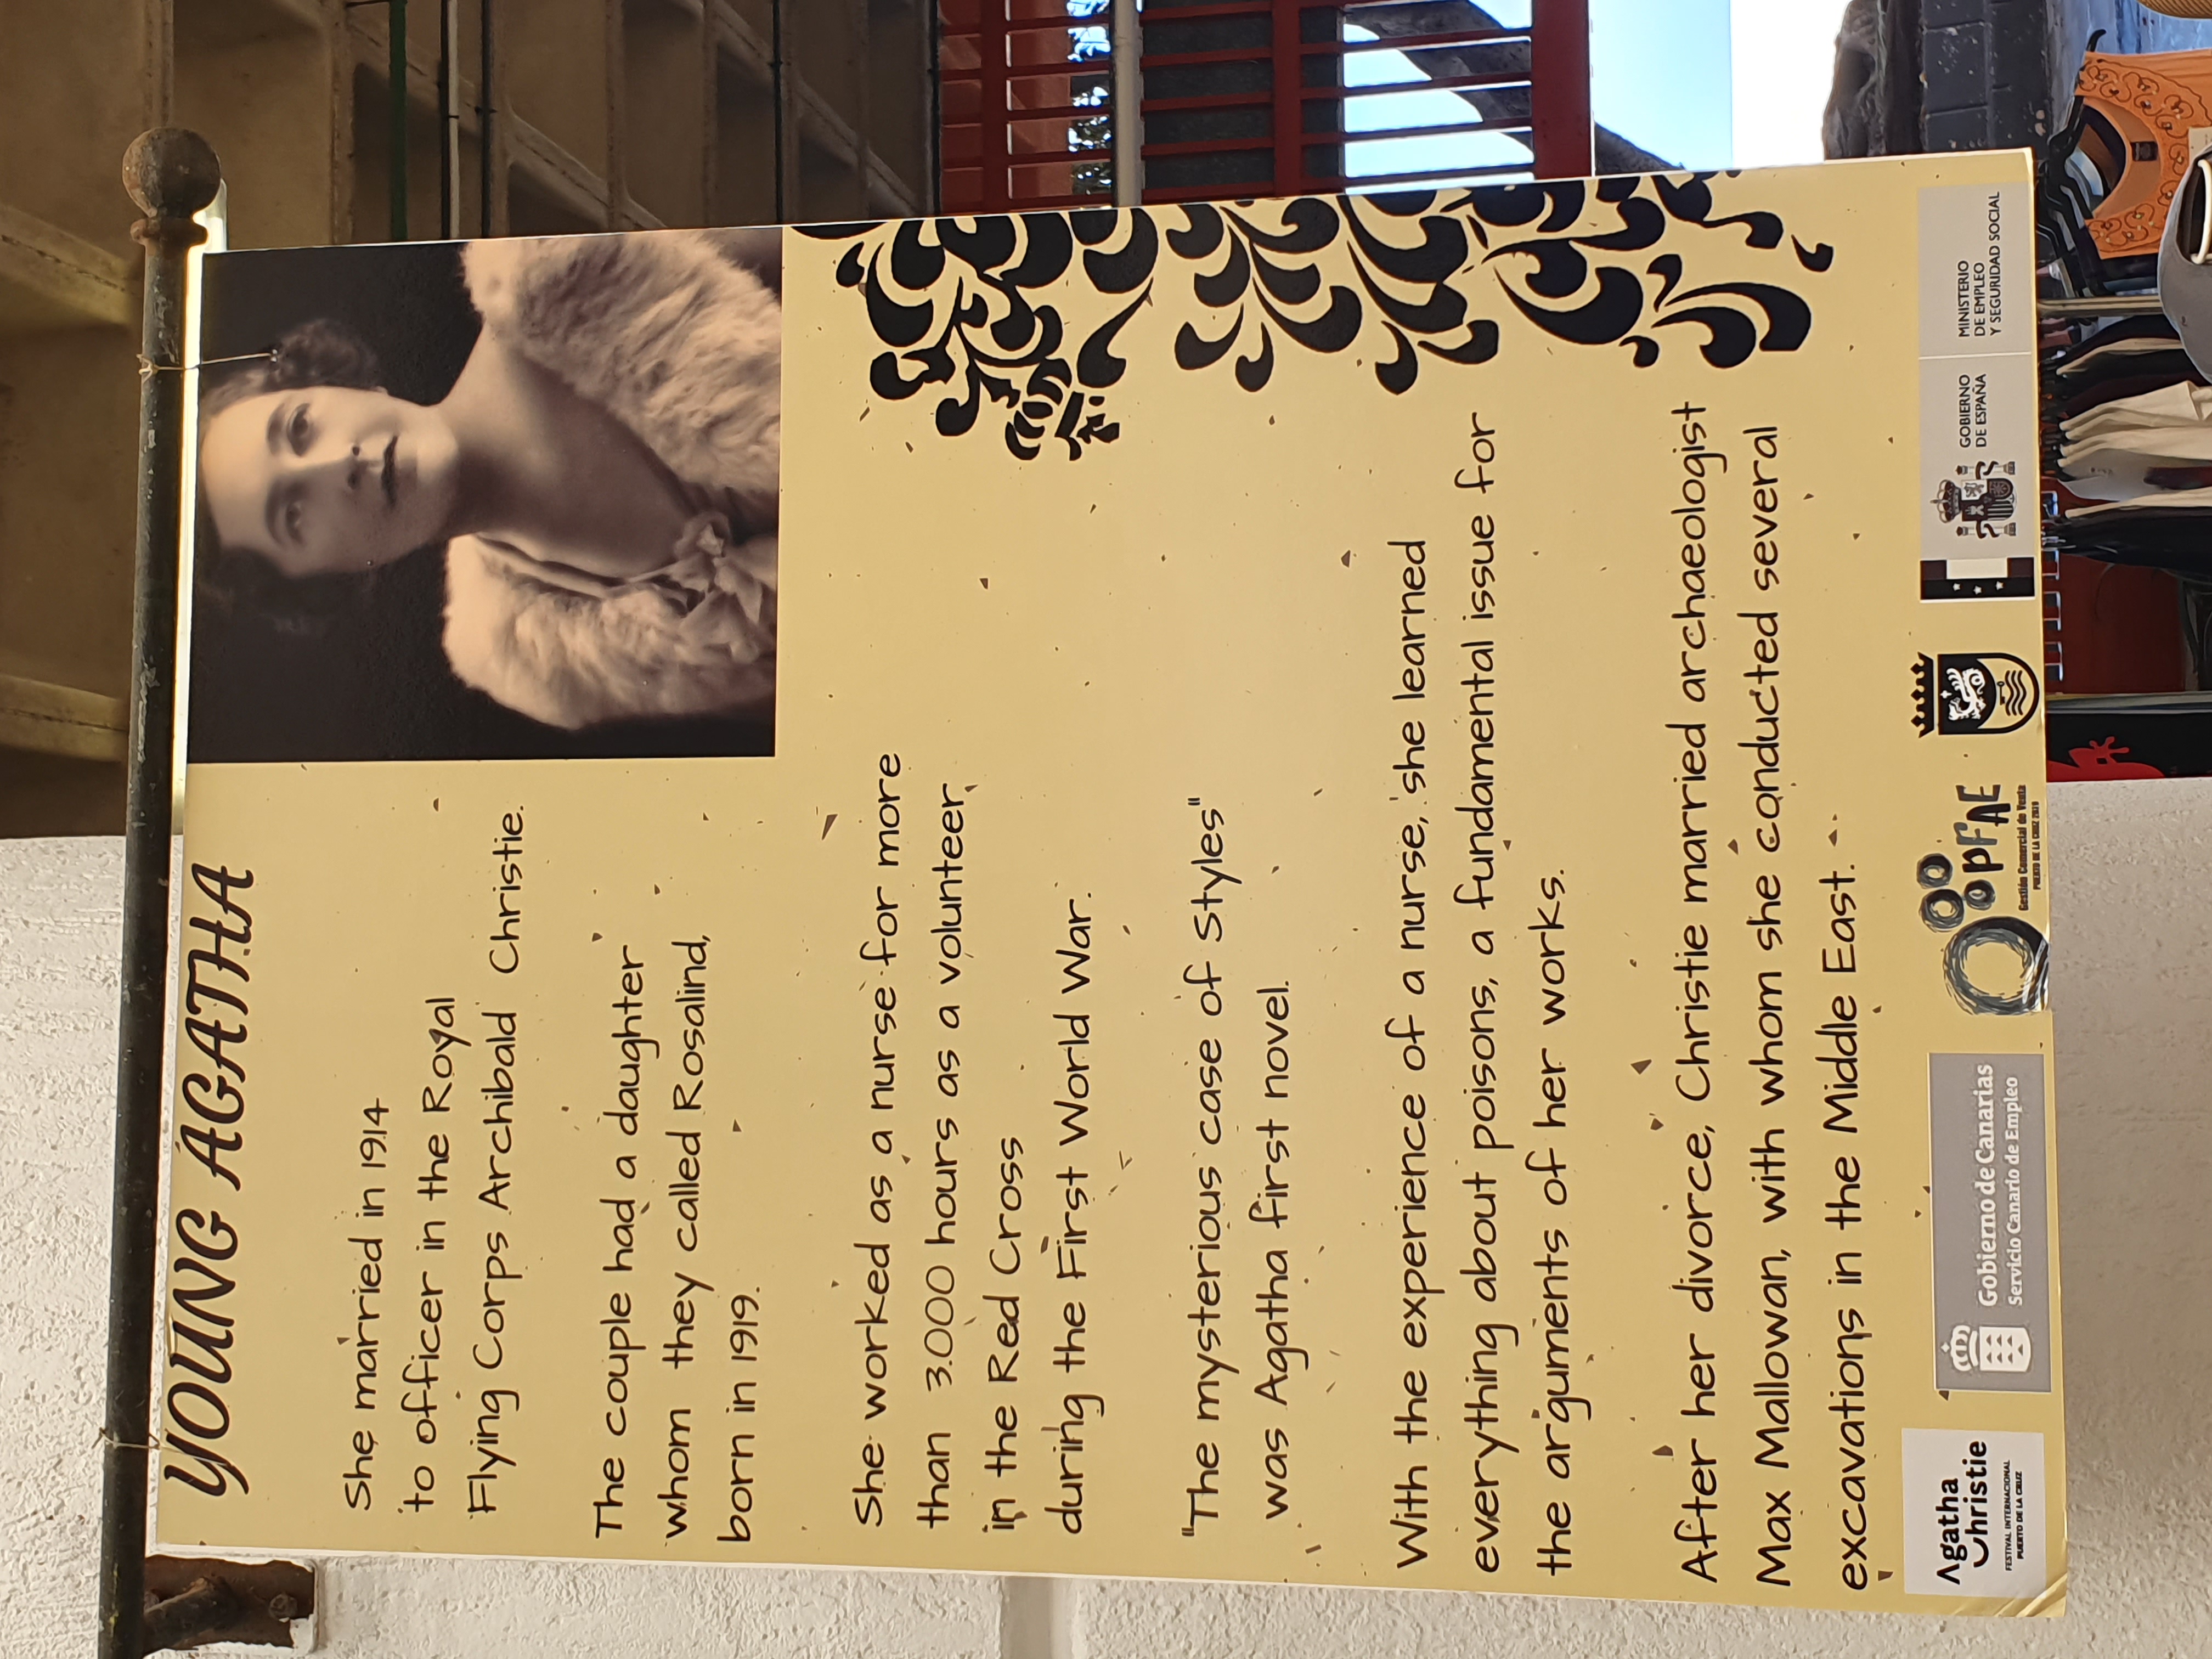 YOUNG AGATHA
She married in 1914
to officer in the Royal
Flying Corps Archibald Christie.
The couple had a daughter
whom they called Rosalind,
born in 1919.
She worked as a nurse for more
than 3.000 hours as a volunteer
in the Red Cross
during the First World War.
"The mysterious case of Styles"
was Agatha first novel.
With the experience of a nurse, she learned
everything about poisons, a fundamental issue for
the arguments of her works.
After her divorce, Christie married archaeologist
Max Mallowan, with whom she conducted several
excavations in the Middle East.
Agatha
Christie
FESTIVAL INTERNACIONAL
PUERTO DE LA CRUZ
Gobierno de Canarias
Servicio Canario de Empleo
PFAE
Gestión Comercial de Venta
PUERTO DE LA CRUZ 2019
GOBIERNO
DE ESPAÑA
MINISTERIO
DE EMPLEO
Y SEGURIDAD SOCIAL